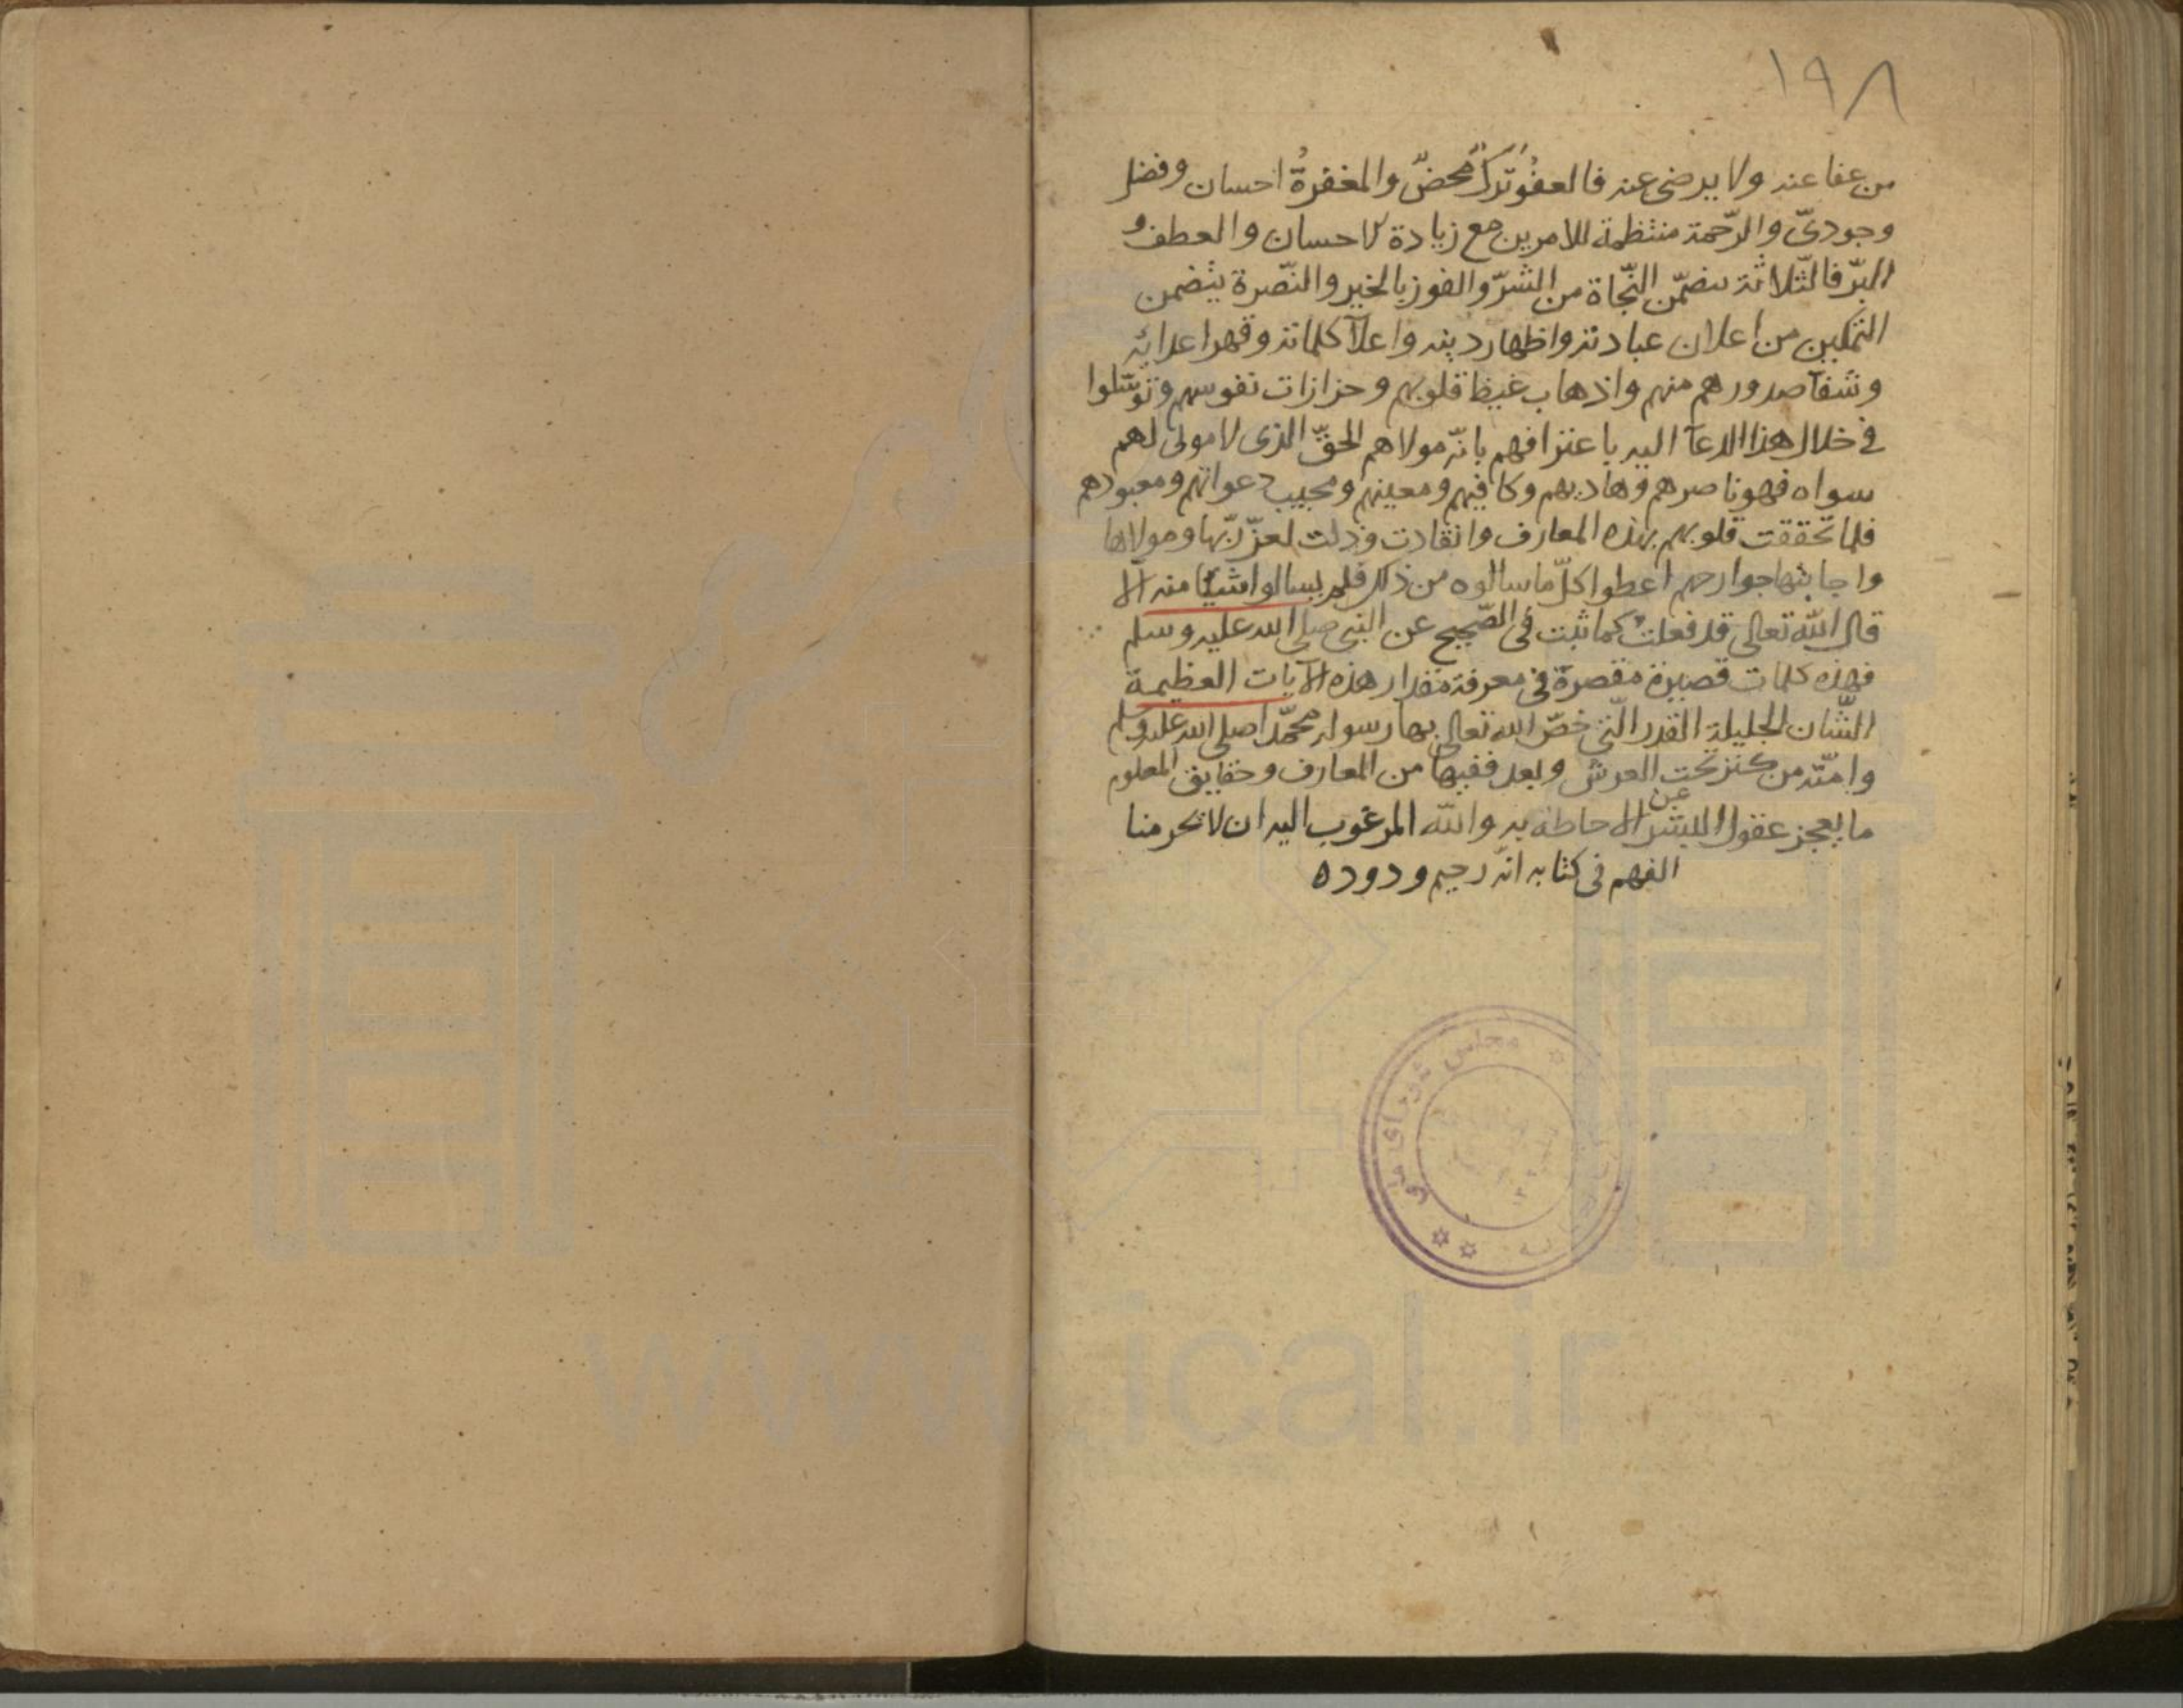 ١٩٨
من عفا عنه ولا يرضى عنه فالعفُو تركٌ محضٌ والمغفرةُ احسان وفضل
وجودىّ والرّحمة منتظمة للامرين مع زيادة الاحسان والعطف و
البرّ فالثّلاثة تتضمّن النّجاة من الشرّ والفوز بالخير والنّصرة يتضمن
التمكين من اعلان عبادته واظهار دينه واعلآ كلماته وقهر اعدائه
وشفآ صدورهم منهم واذهاب غيظ قلوبهم وحزازات نفوسهم وتوسّلوا
فى خلال هذا الدعآ اليه باعترافهم بانّه مولاهم الحقّ الذى لا مولى لهم
سواه فهو ناصرهم وهاديهم وكافيهم ومعينهم ومجيب دعواتهم ومعبودهم
فلما تحققت قلوبهم بهذه المعارف وانقادت وذلت لعزّ ربّها ومولاها
واجابتها جوارحهم اعطوا كلّ ما سالوه من ذلك فلم يسالوا شيئا منه الا
قال الله تعالى قد فعلت كما ثبت فى الصّحيح عن النبى صلى الله عليه وسلم
فهذه كلمات قصيرة مقصرة فى معرفة مقدار هذه الآيات العظيمة
الشّان الجليلة القدر الّتى خصّ الله تعالى بها رسوله محمّدا صلى الله عليه وسلم
وامّته من كنز تحت العرش وبعد ففيها من المعارف وحقايق العلوم
ما يعجز عقول البشر عن الاحاطة به والله المرغوب اليه ان لا يحرمنا
الفهم فى كتابه انّه رحيم ودوده
مجلس شورای ملی
www.ical.ir